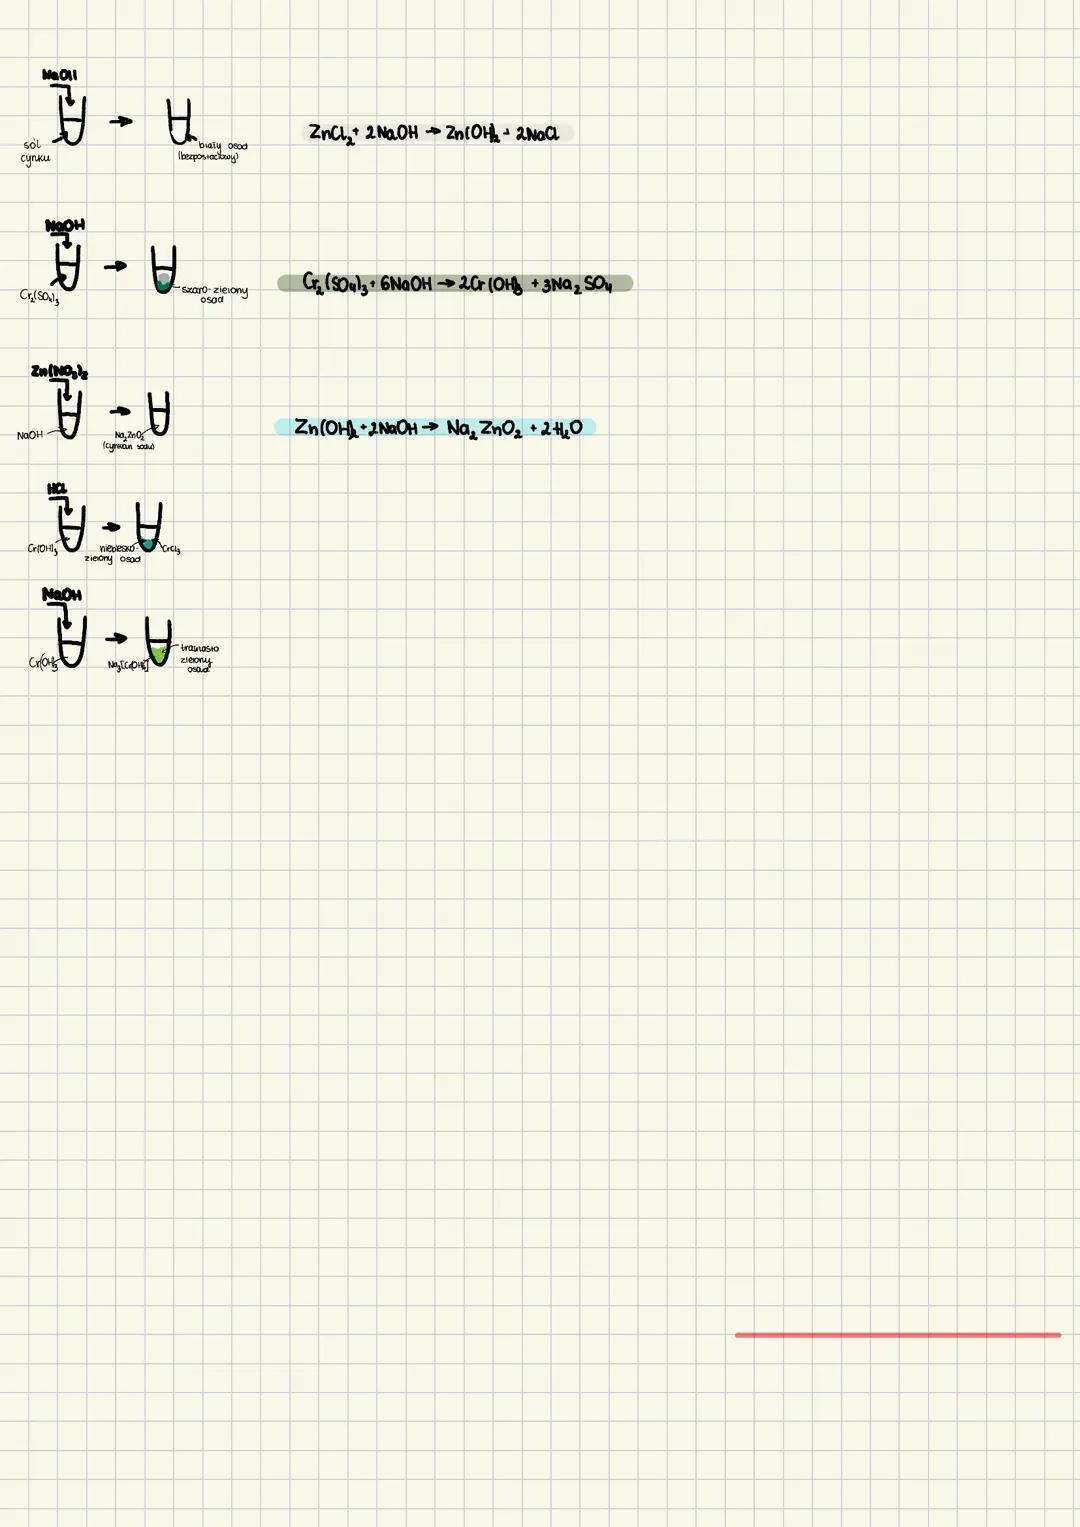 NaOH
sól
cynku
biały osad
(bezpostaciowy)
ZnCl₂ + 2NaOH → Zn(OH)₂ + 2NaCl
NaOH
Cr₂(SO₄)₃
szaro-zielony
osad
Cr₂(SO₄)₃ + 6NaOH → 2Cr(OH)₃ + 3Na₂SO₄
Zn(NO₃)₂
NaOH
Na₂ZnO₂
(cynkan sodu)
Zn(OH)₂ + 2NaOH → Na₂ZnO₂ + 2H₂O
HCl
Cr(OH)₃
niebiesko-
zielony osad
CrCl₃
NaOH
Cr(OH)₃
zielony
osad